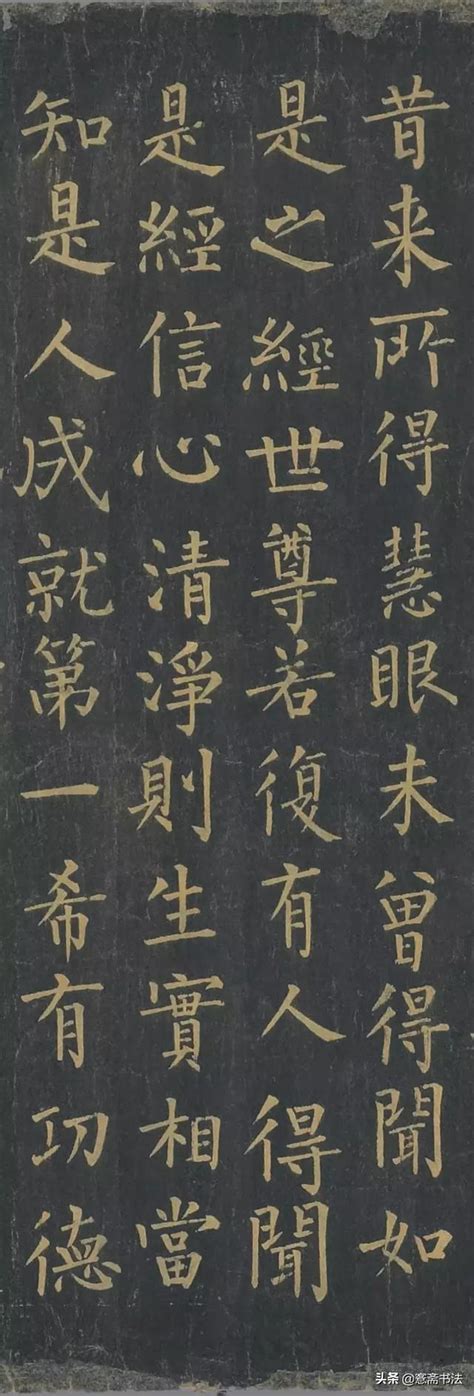 昔来所得慧眼未曾得聞如
是之經世尊若復有人得聞
是經信心清淨則生實相當
知是人成就第一希有功德
头条 @意斋书法